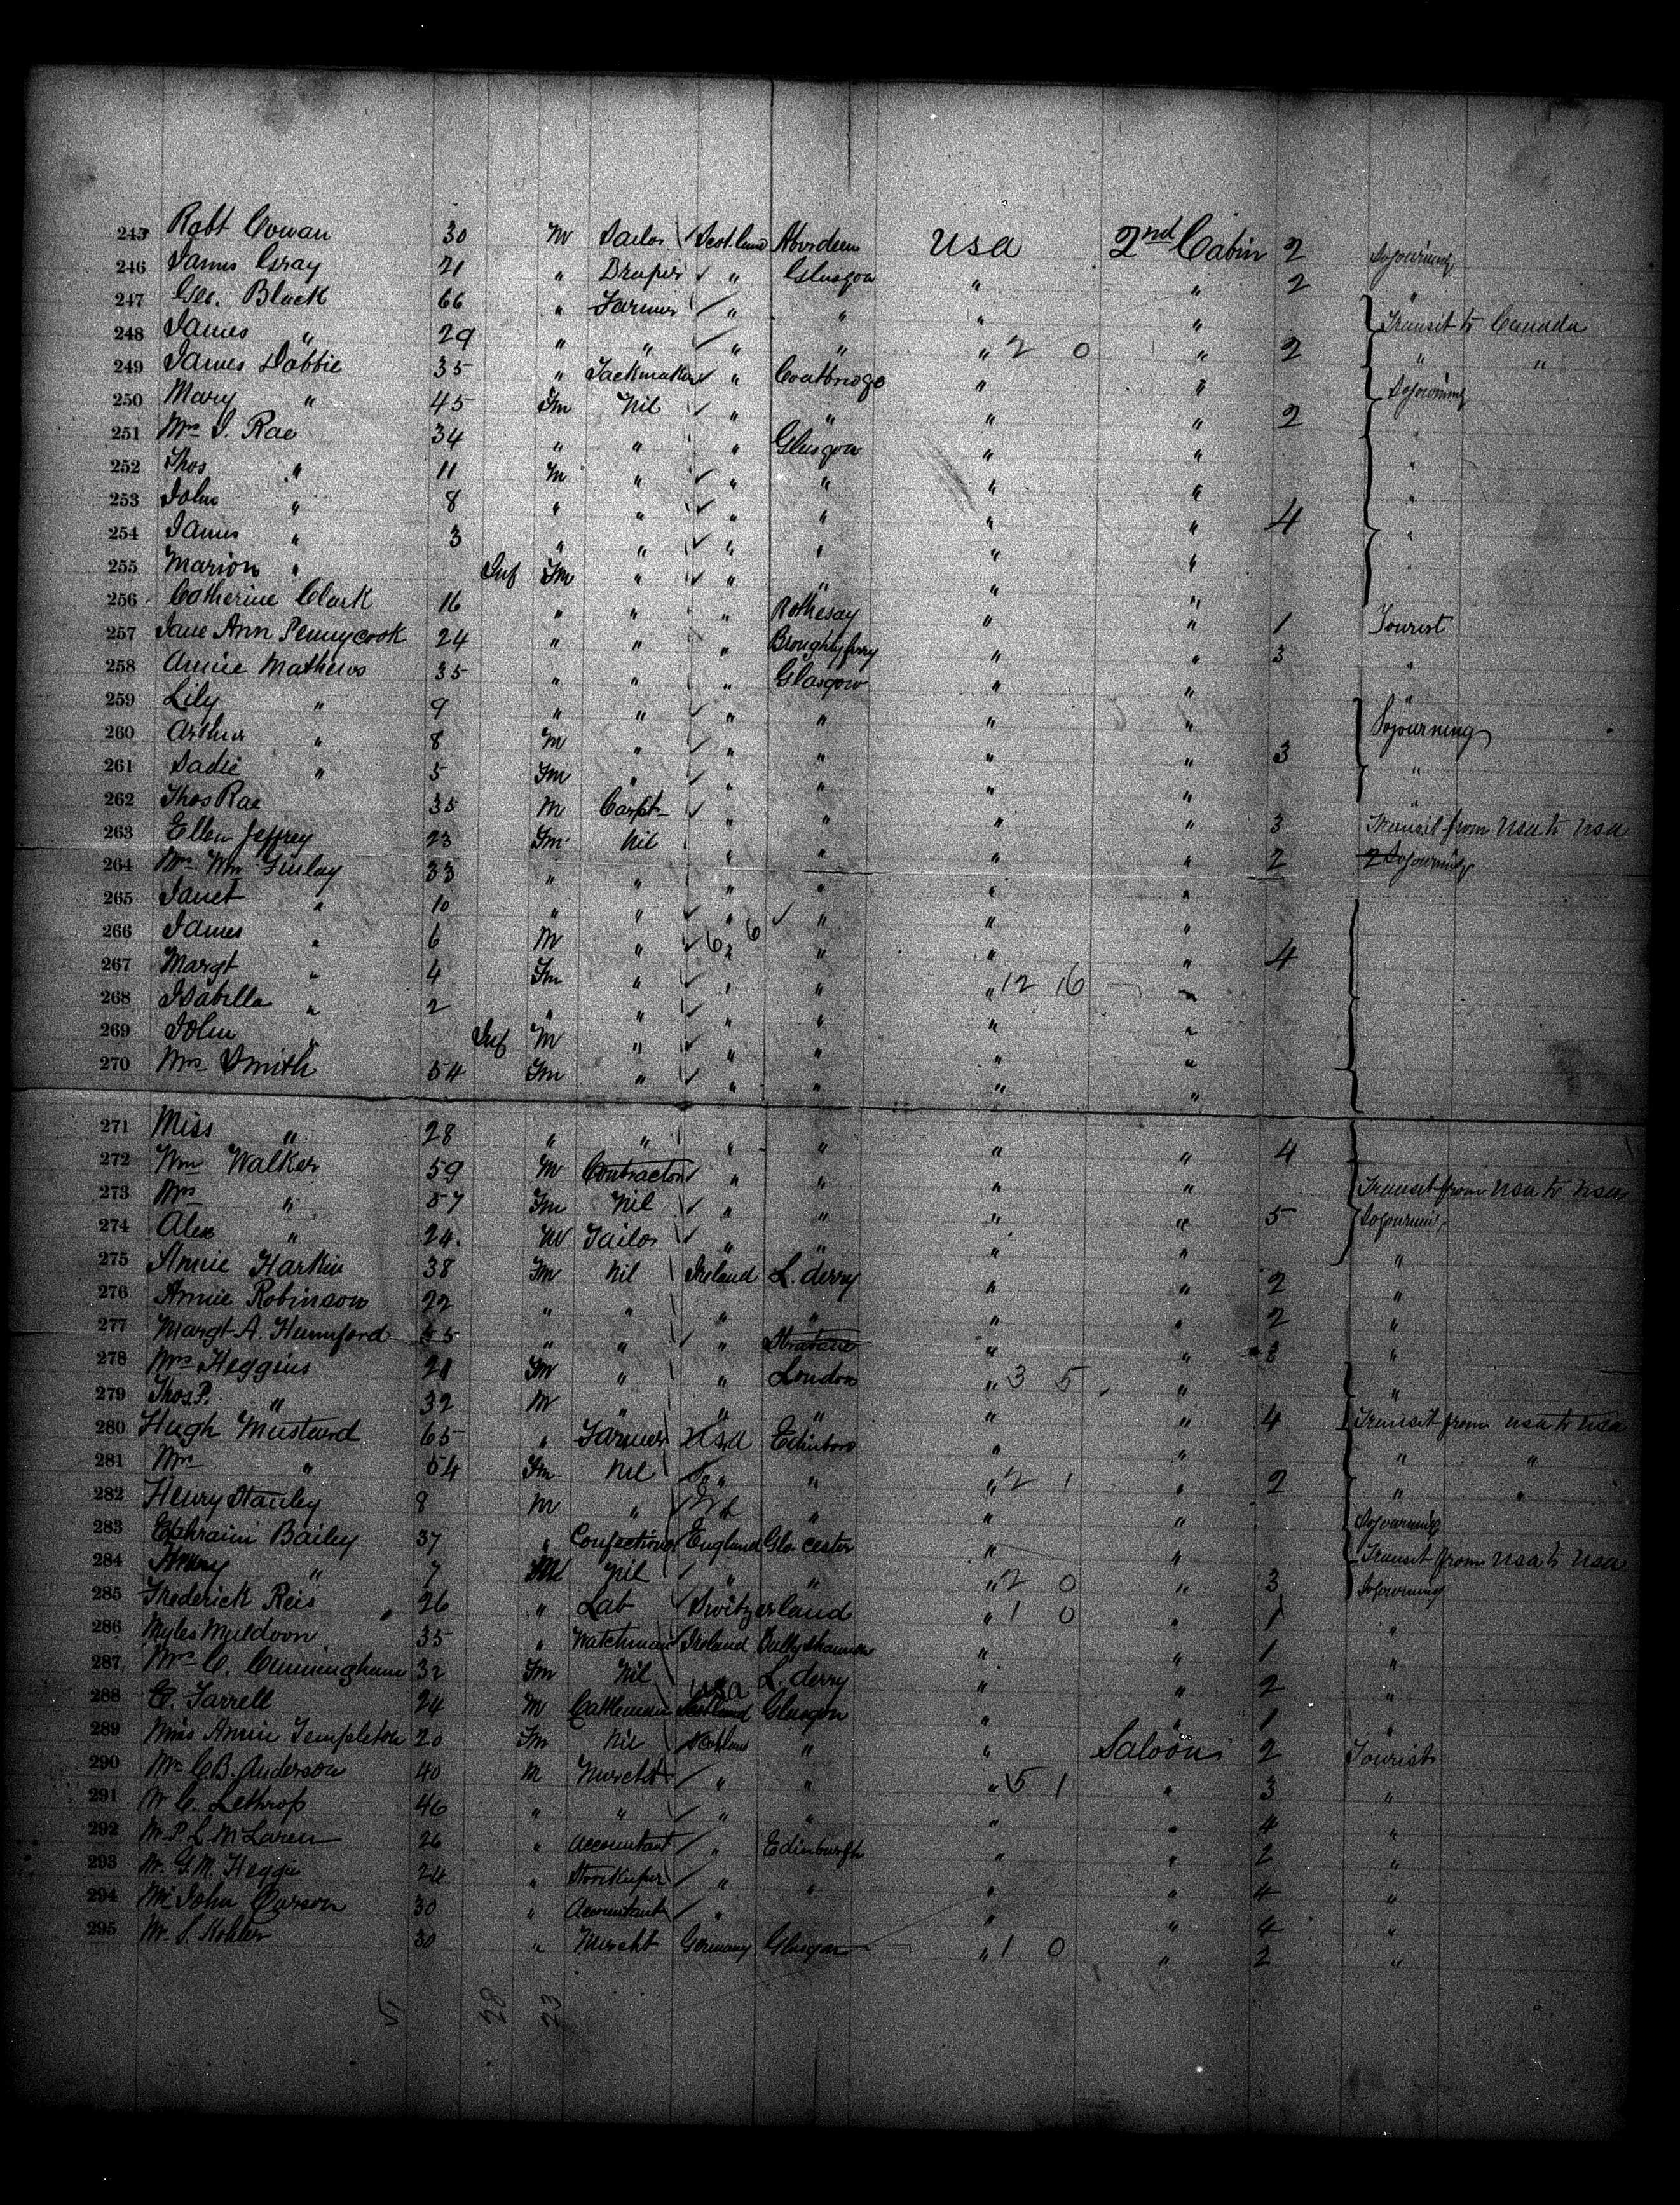 245 Robt Cowan 30 M Sailor Scotland Aberdeen USA 2nd Cabin 2 Sojourning
246 James Gray 21 " Draper " Glasgow " " 2 "
247 Geo. Black 66 " Farmer " " " " Transit to Canada
248 James " 29 " " " " " 2 0 " 2 " "
249 James Dobbie 35 " Sackmaker " Coatbridge " " Sojourning
250 Mary " 45 Fm Nil " " " " 2 "
251 Mrs J. Rae 34 " " " Glasgow " " "
252 Thos " 11 M " " " " " "
253 John " 8 " " " " " " 4 "
254 James " 3 " " " " " " "
255 Marion " Inf Fm " " " " "
256 Catherine Clark 16 " " " Rothesay " " 1 Tourist
257 Jane Ann Pennycook 24 " " " Broughty ferry " " 3 "
258 Annie Mathews 35 " " " Glasgow " " "
259 Lily " 9 " " " " " " Sojourning
260 Arthur " 8 M " " " " " 3 "
261 Sadie " 5 Fm " " " " "
262 Thos Rae 35 M Carpt " " " " 3 Transit from USA to USA
263 Ellen Jeffrey 23 Fm Nil " " " " 2 2 Sojourning
264 Mrs Wm Finlay 33 " " " " " "
265 Janet " 10 " " " " " "
266 James " 6 M " 6 " 6 " " " 4
267 Margt " 4 Fm " " " " 12 16 "
268 Isabella " 2 " " " " " "
269 John " Inf M " " " " "
270 Mrs Smith 54 Fm " " " " "
271 Miss " 28 " " " " " " 4
272 Wm Walker 59 M Contractor " " " " Transit from USA to USA
273 Mrs " 57 Fm Nil " " " " 5 Sojourning
274 Alex " 24. M Tailor " " " " "
275 Annie Harkin 38 Fm Nil Ireland L. derry " " 2 "
276 Annie Robinson 22 " " " " " " 2 "
277 Margt A. 55 " " " Strabane " " "
278 Mrs Heggins 21 Fm " " London " 3 5 " "
279 Thos P. " 32 M " " " " " 4 Transit from USA to USA
280 Hugh Mustard 65 " Farmer USA Edinboro " " " "
281 Mrs " 54 Fm Nil " " " 2 1 " 2 " "
282 Henry Stanley 8 M " " " " Sojourning
283 Ephraim Bailey 37 " Confectioner England Glo cester " " Transit from USA to USA
284 7 M Nil " " " 2 0 " 3 Sojourning
285 Frederick Reis 26 " Lab Switzerland " 1 0 " 1 "
286 Myles Muldoon 35 " Watchman Ireland Ballyshannon " " 1 "
287 Mrs C. Cunningham 32 Fm Nil " L. derry " " 2 "
288 C. Farrell 24 M Cattleman USA Scotland Glasgow " " 1 "
289 Miss Annie Templeton 20 Fm Nil Scotland " " Saloon 2 Tourist
290 Mr C.B. Anderson 40 M Mercht " " " 5 1 " 3 "
291 Mr C. Lethrop 46 " " " " " " 4 "
292 Mr P. L. McLaren 26 " Accountant " Edinburgh " " 2 "
293 Mr G.M. Heggie 24 " Storekeeper " " " " 4 "
294 Mr John Carson 30 " Accountant " " " 4 "
295 Mr S. Kohler 30 " Mercht Germany Glasgow " 1 0 " 2 "
51 28 23